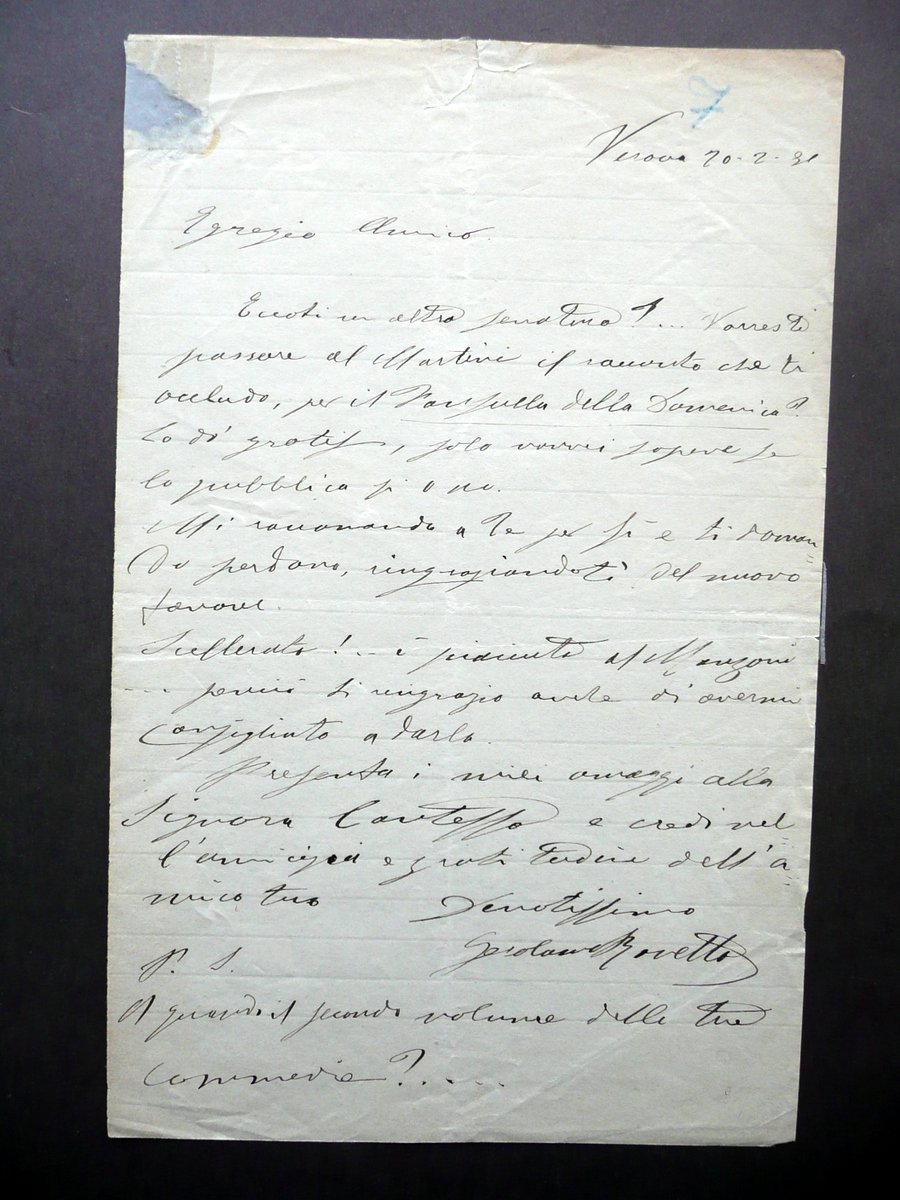 Verona 20-2-81
Egregio Amico.
Eccoti un altro !... Vorresti
passare al Martini il racconto che ti
accludo, per il Fanfulla della Domenica?
Lo dò gratis, solo vorrei sapere se
lo pubblica sì o no.
Mi raccomando a te per ciò e ti doman
do perdono, ringraziandoti del nuovo
favore.
Scellerato! .. è piaciuto al Manzoni
... perciò ti ringrazio anche di avermi
consigliato a darlo.
Presenta i miei omaggi alla
Signora Contessa e credi nel-
l'amicizia e gratitudine dell'a-
mico tuo
Devotissimo
Gerolamo Rovetta
P. S.
A quando il secondo volume delle tue
commedie?.....